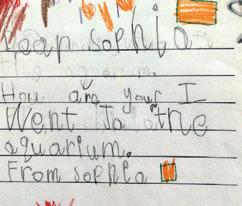 Dear sophia
How am your I
Went To the
aquarium.
From sophia